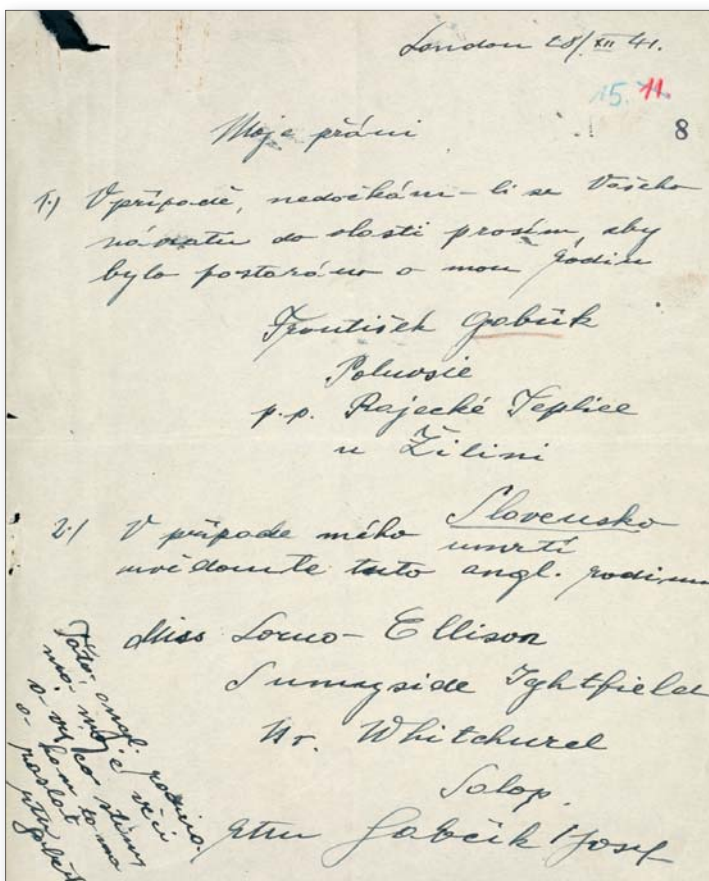 London 28/XII 41.
15. 11.
8
Moje přáni
1.) V případě, nedočkám-li se Vašeho
návratu do vlasti prosím, aby
bylo postaráno o mou rodinu
František Gabčík
Poluvsie
p.p. Rajecké Teplice
u Žilini
Slovensko
2.) V případe mého umrtí
uvědomte tuto angl. rodinu
Miss Lorno-Ellison
Sunnyside Ightfield
Nr. Whitchurch
Salop.
Gabčík Josef
Táto angl. rodina
má moje věci
a ví, co s tím
a kam to má
poslat
Gabčík